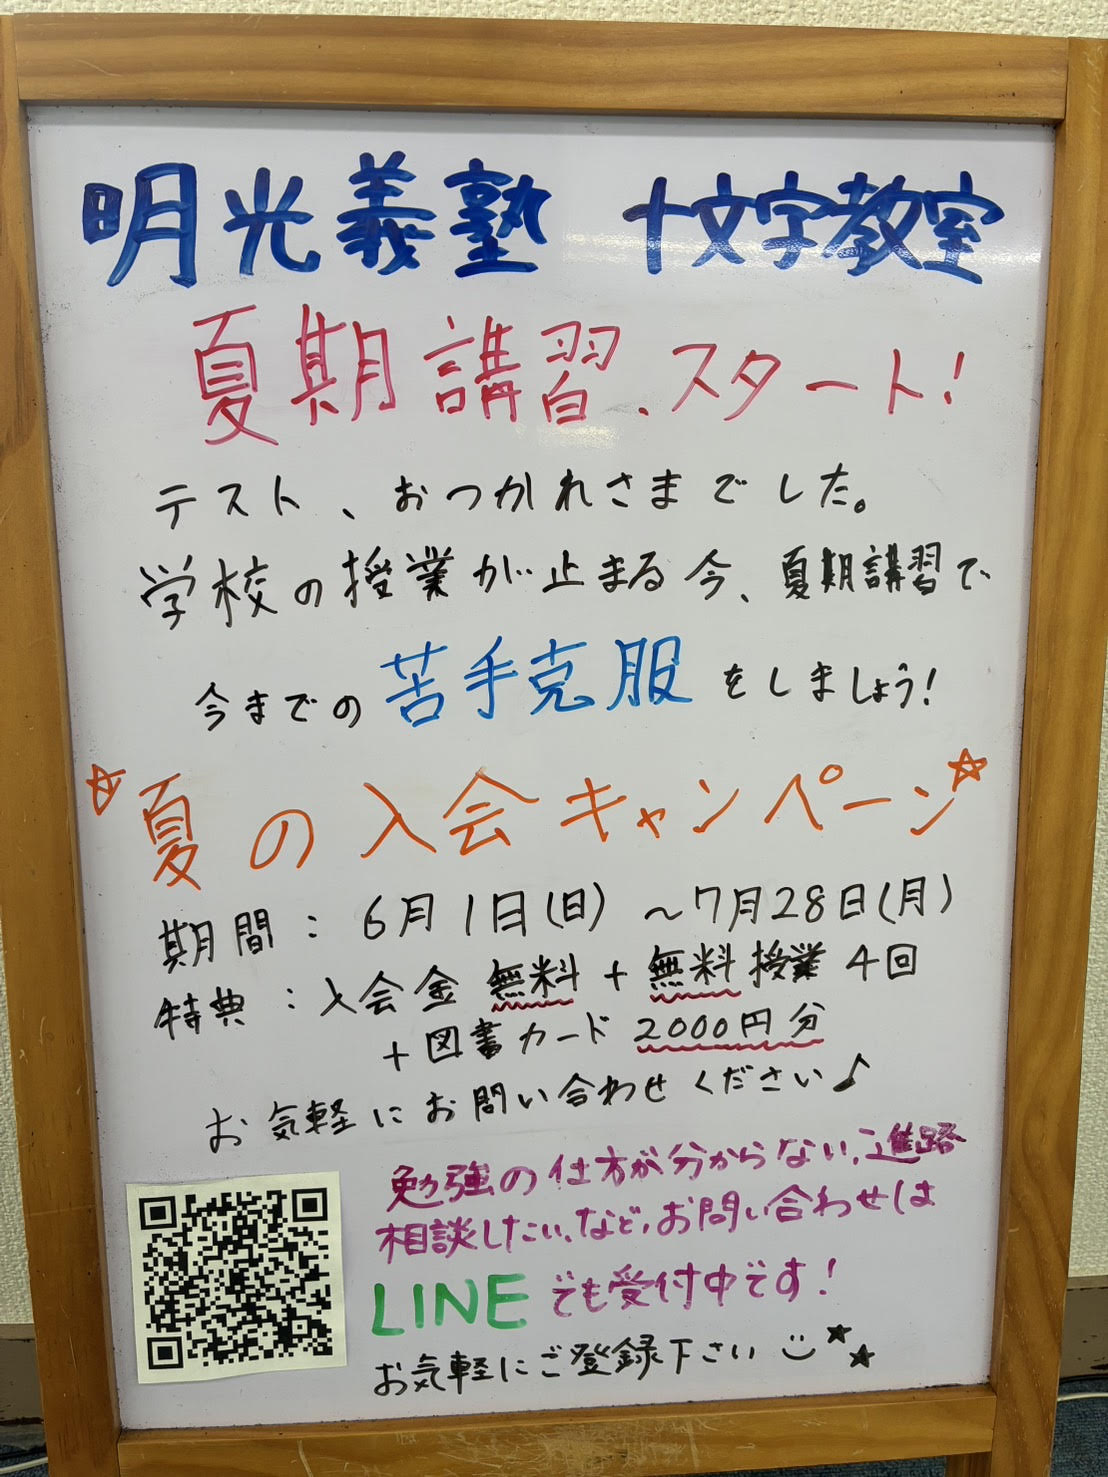 明光義塾 十文字教室
夏期講習、スタート!
テスト、おつかれさまでした。
学校の授業が止まる今、夏期講習で
今までの苦手克服をしましょう!
☆夏の入会キャンペーン☆
期間:6月1日(日)~7月28日(月)
特典:入会金 無料+無料授業4回
+図書カード2000円分
お気軽にお問い合わせください♪
勉強の仕方が分からない、進路
相談したい、など、お問い合わせは
LINEでも受付中です!
お気軽にご登録下さい